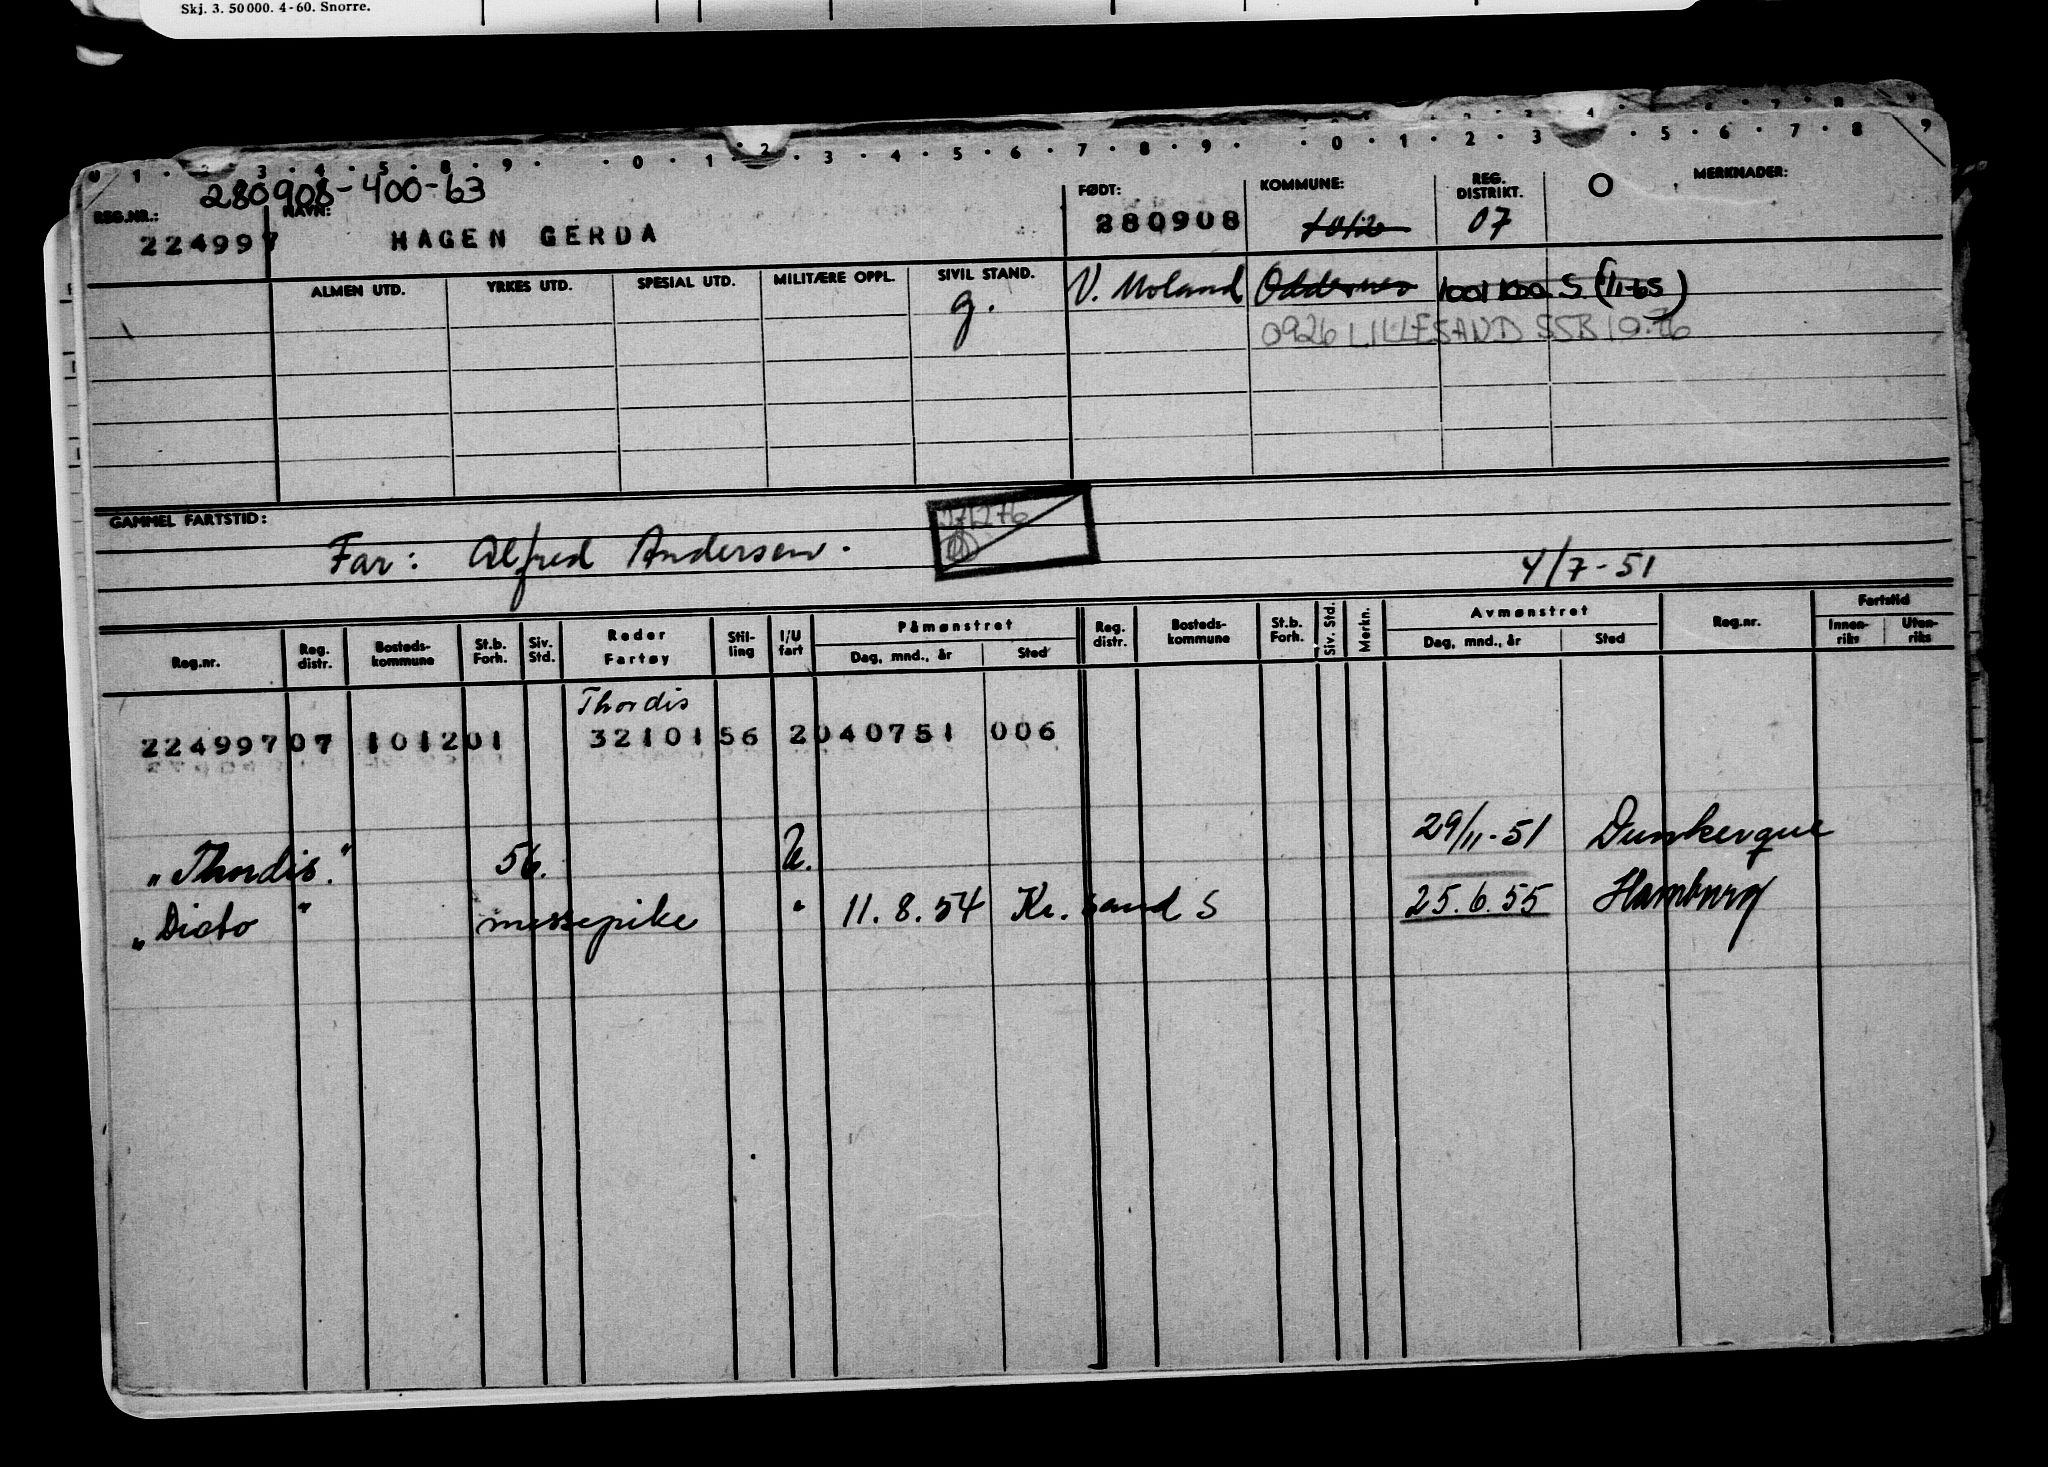 Skj. 3. 50 000. 4-60. Snorre.
0 1 2 3 4 5 6 7 8 9 0 1 2 3 4 5 6 7 8 9 0 1 2 3 4 5 6 7 8 9
280908-400-63
REG.NR.: NAVN: FØDT: KOMMUNE: REG. DISTRIKT. O MERKNADER:
224997 HAGEN GERDA 280908 07
ALMEN UTD. YRKES UTD. SPESIAL UTD. MILITÆRE OPPL. SIVIL STAND. V. Moland Oddernes 1001 Kra. S. (1/1-65)
g.
0926 LILLESAND SSB 10.76
GAMMEL FARTSTID:
271276
Far: Alfred Andersen.
4/7-51
Reg.nr. Reg. distr. Bosteds-kommune St.b. Forh. Siv. Std. Reder Fartøy Stil-ling I/U fart Påmønstret Dag, mnd., år Sted Reg. distr. Bosteds-kommune St.b. Forh. Siv. Std. Merkn. Avmønstret Dag, mnd., år Sted Reg.nr. Fartstid Innen-riks Uten-riks
Thordis
224997 07 1012 01 32101 56 2 040751 006
29/11-51 Dunkerque
"Thordis." 56. U.
"Dicto" messepike " 11.8.54 Kr.sand S 25.6.55 Hamburg